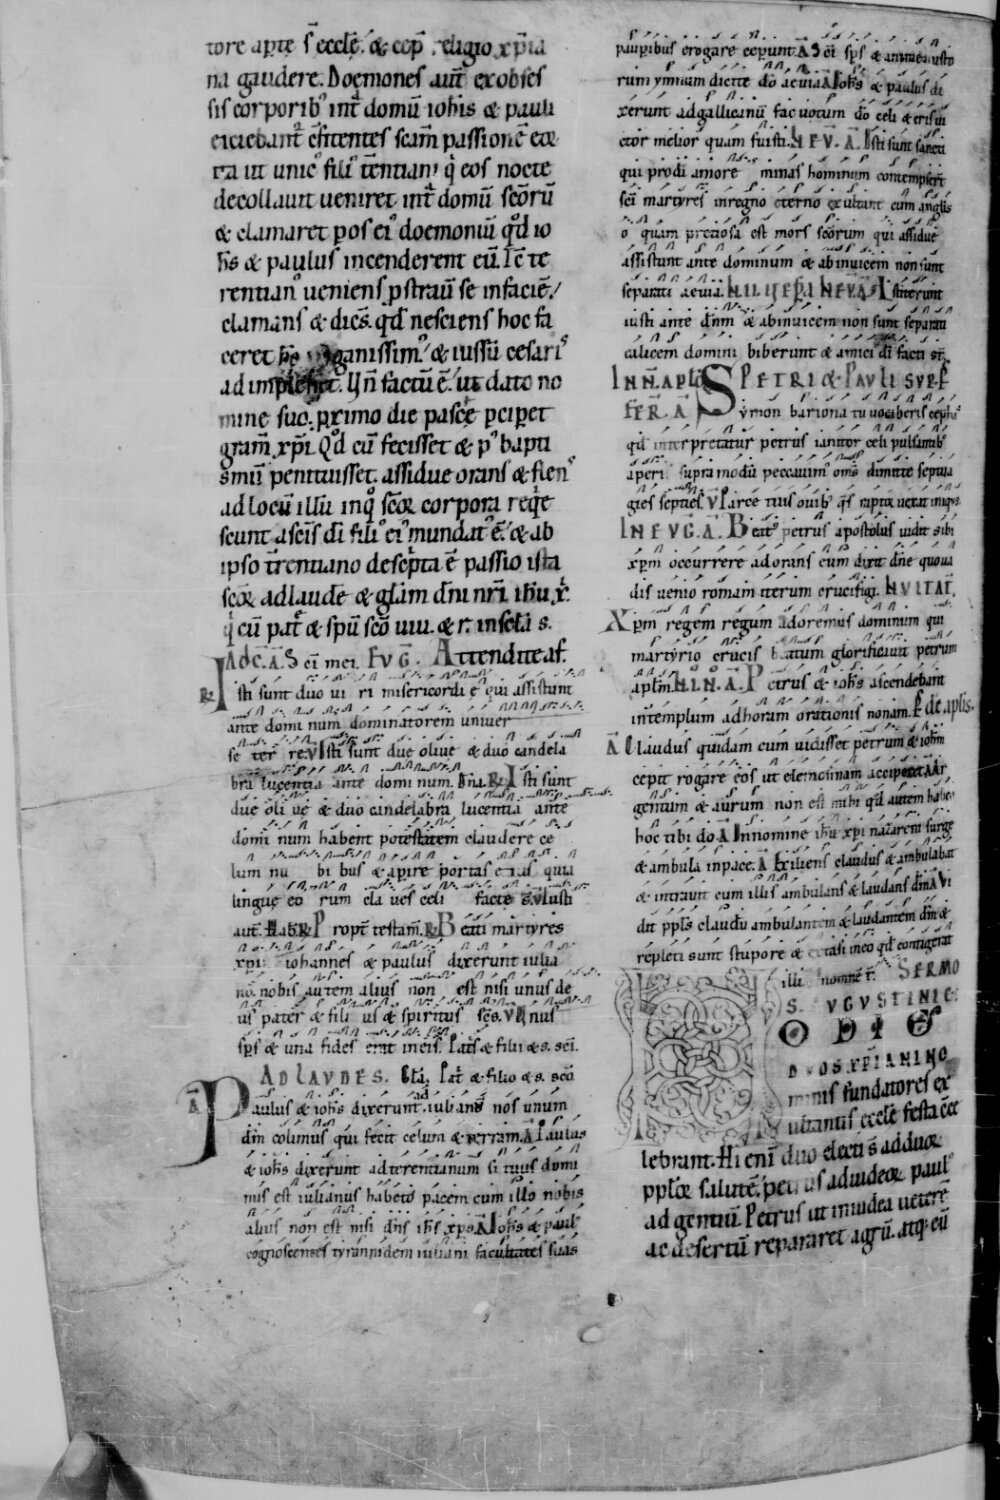 tore aꝑte s̄ eccl̄e. & cep̄ religio xp̄ia
na gaudere. Doemones aut̄ ex obses
sis corporibꝰ int̄ domū ioh̄is & pauli
eiciebant᷑ c̄fitentes sc̄am passionē eoꝝ
ita ut unicꝰ filiꝰ t̄entiani q̄ eos nocte
decollauit ueniret int̄ domū sc̄orū
& clamaret ꝑ os eiꝰ doemoniū qd̄ io
h̄s & paulus incenderent eū. Tc̄ te
rentianꝰ ueniens ꝓstrauit se in faciē.
clamans & dic̄s. qd̄ nesciens hoc fa
ceret paganissimꝰ. & iussū cesaris
ad implesset. In̄ factū ē. ut dato no
mine suo. ꝓximo die pasce ꝑciꝑet
gram̄ xp̄i. Qd̄ cū fecisset & pꝰ bapti
smū penituisset. assidue orans & flens
ad locū illū in qꝰ sc̄oꝝ corpora reqe
scunt a sc̄is d̄i filiꝰ eiꝰ mundatꝰ ē. & ab
ipso t̄rentiano desc̄pta ē passio ista
sc̄oꝝ ad laudē & gl̄am dn̄i nr̄i ih̄u x̄.
q̄ cū pat̄ & sp̄u sc̄o uiu. & r. in sc̄la s.
ADC. A. Sc̄i mei. EVG. Attendite a f.
℟ Isti sunt duo uiri misericordie qui assistunt
ante dominum dominatorem uniuer
se terre. V Isti sunt due oliue & duo candela
bra lucentia ante dominum. Dn̄a. ℟ Isti sunt
due oliue & duo candelabra lucentia ante
dominum habent potestatem claudere ce
lum nubibus & aperire portas eius quia
lingue eorum claues celi facte s̄. V Iusti
aut̄. Hab. ℟ Propt̄ testam̄. ℟ Beati martyres
xp̄i iohannes & paulus dixerunt iulia
no. nobis autem alius non est nisi unus de
us pater & filius & spiritus sc̄s. V Unus
sp̄s & una fides erat in eis. Pat̄s & filii & s. sc̄i.
AD LAVDES. Gl̄a. Pat̄ & filio & s. sc̄o
A Paulus & ioh̄s dixerunt ad iulianū nos unum
dn̄m colimus qui fecit celum & terram. A Paulus
& ioh̄s dixerunt ad terentianum si tuus domi
nus est iulianus habeto pacem cum illo nobis
alius non est nisi dn̄s ih̄s xp̄s. A Ioh̄s & paulꝰ
cognoscentes tyrannidem iuliani facultates suas
pauperibus erogare ceperunt. A Sc̄i sp̄s & anime iusto
rum ymnum dicite d̄o aeuia. A Ioh̄s & paulus di
xerunt ad gallicanū fac uotum d̄o celi & eris ui
ctor melior quam fuisti. IN EV. A. Isti sunt sancti
qui pro d̄i amore minas hominum contempser̄t
sc̄i martyres in regno eterno exultant cum anglis
o quam preciosa est mors sc̄orum qui assidue
assistunt ante dominum & ab inuicem non sunt
separati aeuia. IN II VESPA IN EV. A. Astiterunt
iusti ante dn̄m & ab inuicem non sunt separati
calicem domini biberunt & amici d̄i facti st̄.
IN N. APLOꝝ PETRI & PAVLI SVPER
FER. A Symon bariona tu uocaberis cephas
qd̄ interpretatur petrus ianitor celi pulsantibꝰ
aperi supra modū peccauimꝰ om̄s dimitte septua
gies septies. V Parce tuis ouibꝰ q̄s raptor uexat iniquꝰ.
IN EVG. A. Beatꝰ petrus apostolus uidit sibi
xp̄m occurrere adorans eum dixit dn̄e quoua
dis uenio romam iterum crucifigi. INVITAT̄.
Xp̄m regem regum adoremus dominum qui
martyrio crucis beatum glorificauit petrum
apl̄m. IN I. N. A. Petrus & ioh̄s ascendebant
in templum ad horam orationis nonam. Ps̄ de apl̄is.
A Claudus quidam cum uidisset petrum & ioh̄m
cepit rogare eos ut elemosinam acciperet. A Ar
gentum & aurum non est mihi qd̄ autem habeo
hoc tibi do. A In nomine ih̄u xp̄i nazareni surge
& ambula in pace. A Exiliens claudus & ambulabat
& intrauit cum illis ambulans & laudans dn̄m. A Vi
dit pp̄ls claudū ambulantem & laudantem dn̄m &
repleti sunt stupore & extasi in eo qd̄ contigerat
illi. SERMO
S. AVGVSTINI EP̄.
HODIE
DVOS XPIANI NO
minis fundatores ex
ultantis eccl̄e festa cele
lebrant. Hi enī duo electi s̄ ad duoꝝ
pploꝝ salutē. petrus ad iudeoꝝ paulꝰ
ad gentiū. Petrus ut in iudea ueterē
ac desertū repararet agrū. atq̄ eū